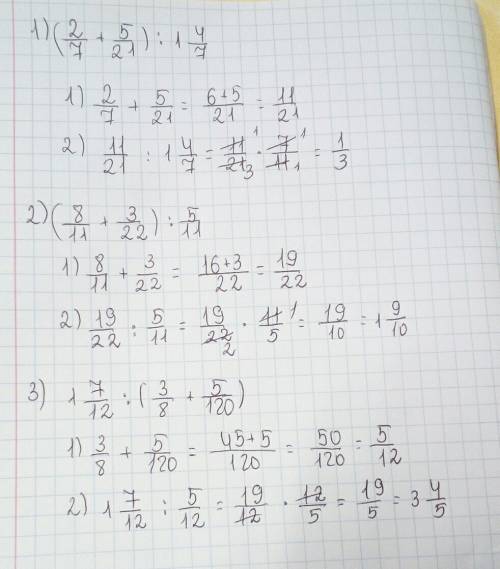 1) (2/7 + 5/21) : 1 4/7
1) 2/7 + 5/21 = 6+5/21 = 11/21
2) 11/21 : 1 4/7 = 11 1/21 3 · 7 1/11 1 = 1/3
2) (8/11 + 3/22) : 5/11
1) 8/11 + 3/22 = 16+3/22 = 19/22
2) 19/22 : 5/11 = 19/22 2 · 11 1/5 = 19/10 = 1 9/10
3) 1 7/12 : (3/8 + 5/120)
1) 3/8 + 5/120 = 45+5/120 = 50/120 = 5/12
2) 1 7/12 : 5/12 = 19/12 · 12/5 = 19/5 = 3 4/5